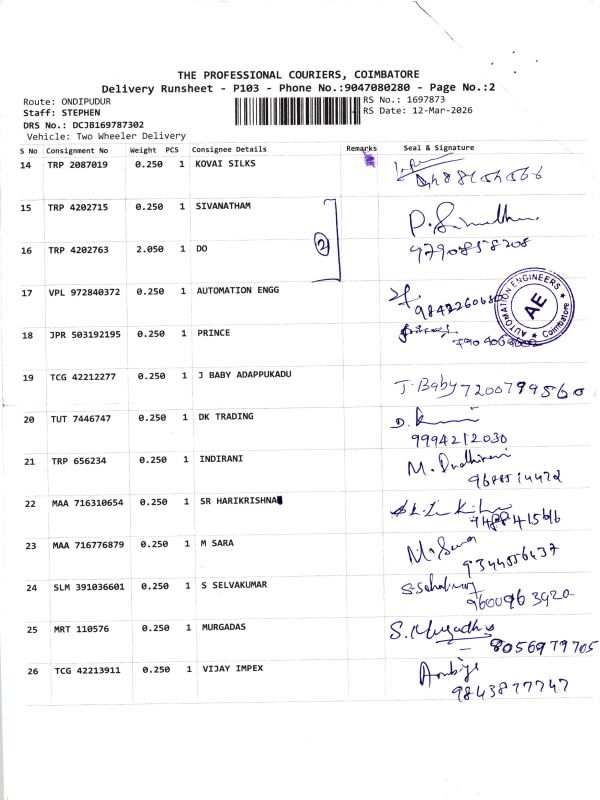 THE PROFESSIONAL COURIERS, COIMBATORE
Delivery Runsheet - P103 - Phone No.:9047080280 - Page No.:2
Route: ONDIPUDUR
RS No.: 1697873
Staff: STEPHEN
RS Date: 12-Mar-2026
DRS No.: DCJB169787302
Vehicle: Two Wheeler Delivery
S No Consignment No Weight PCS Consignee Details Remarks Seal & Signature
14 TRP 2087019 0.250 1 KOVAI SILKS
15 TRP 4202715 0.250 1 SIVANATHAM
16 TRP 4202763 2.050 1 DO
2
9790858205
17 VPL 972840372 0.250 1 AUTOMATION ENGG
AUTOMATION ENGINEERS
AE
Coimbatore
18 JPR 503192195 0.250 1 PRINCE
19 TCG 42212277 0.250 1 J BABY ADAPPUKADU
J-Baby 7200799560
20 TUT 7446747 0.250 1 DK TRADING
9994212030
21 TRP 656234 0.250 1 INDIRANI
22 MAA 716310654 0.250 1 SR HARIKRISHNA
23 MAA 716776879 0.250 1 M SARA
9344556437
24 SLM 391036601 0.250 1 S SELVAKUMAR
9600963920
25 MRT 110576 0.250 1 MURGADAS
8056979705
26 TCG 42213911 0.250 1 VIJAY IMPEX
9843877747